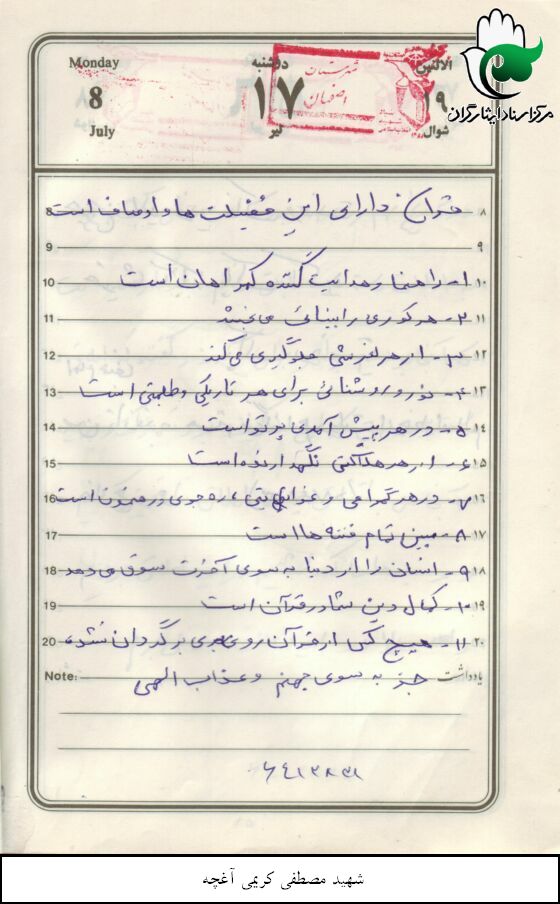 مرکز اسناد ایثارگران
Monday دوشنبه الاثنین
8 ۱۷ ۱۹
July تیر شوال
شهرستان
اصفهان
8 قرآن دارای این فضیلت ها و اوصاف است ۸
9 ۹
10 ۱- راهنما و هدایت کننده گمراهان است ۱۰
11 ۲- هر کوری را بینائی می بخشد ۱۱
12 ۳- از هر لغزشی جلوگیری می کند ۱۲
13 ۴- نور و روشنائی برای هر تاریکی و ظلمتی است ۱۳
14 ۵- در هر پیش آمدی پرتو است ۱۴
15 ۶- از هر هلاکتی نگهدارنده است ۱۵
16 ۷- در هر گمراهی و ره جوی و رهنمون است ۱۶
17 ۸- مبین تمام فتنه ها است ۱۷
18 ۹- انسان را از دنیا به سوی آخرت سوق می دهد ۱۸
19 ۱۰- کمال دین شما در قرآن است ۱۹
20 ۱۱- هیچ کس از قرآن روی برگردان نشده ۲۰
Note: جز به سوی جهنم و عذاب الهی یادداشت
شهید مصطفی کریمی آغچه